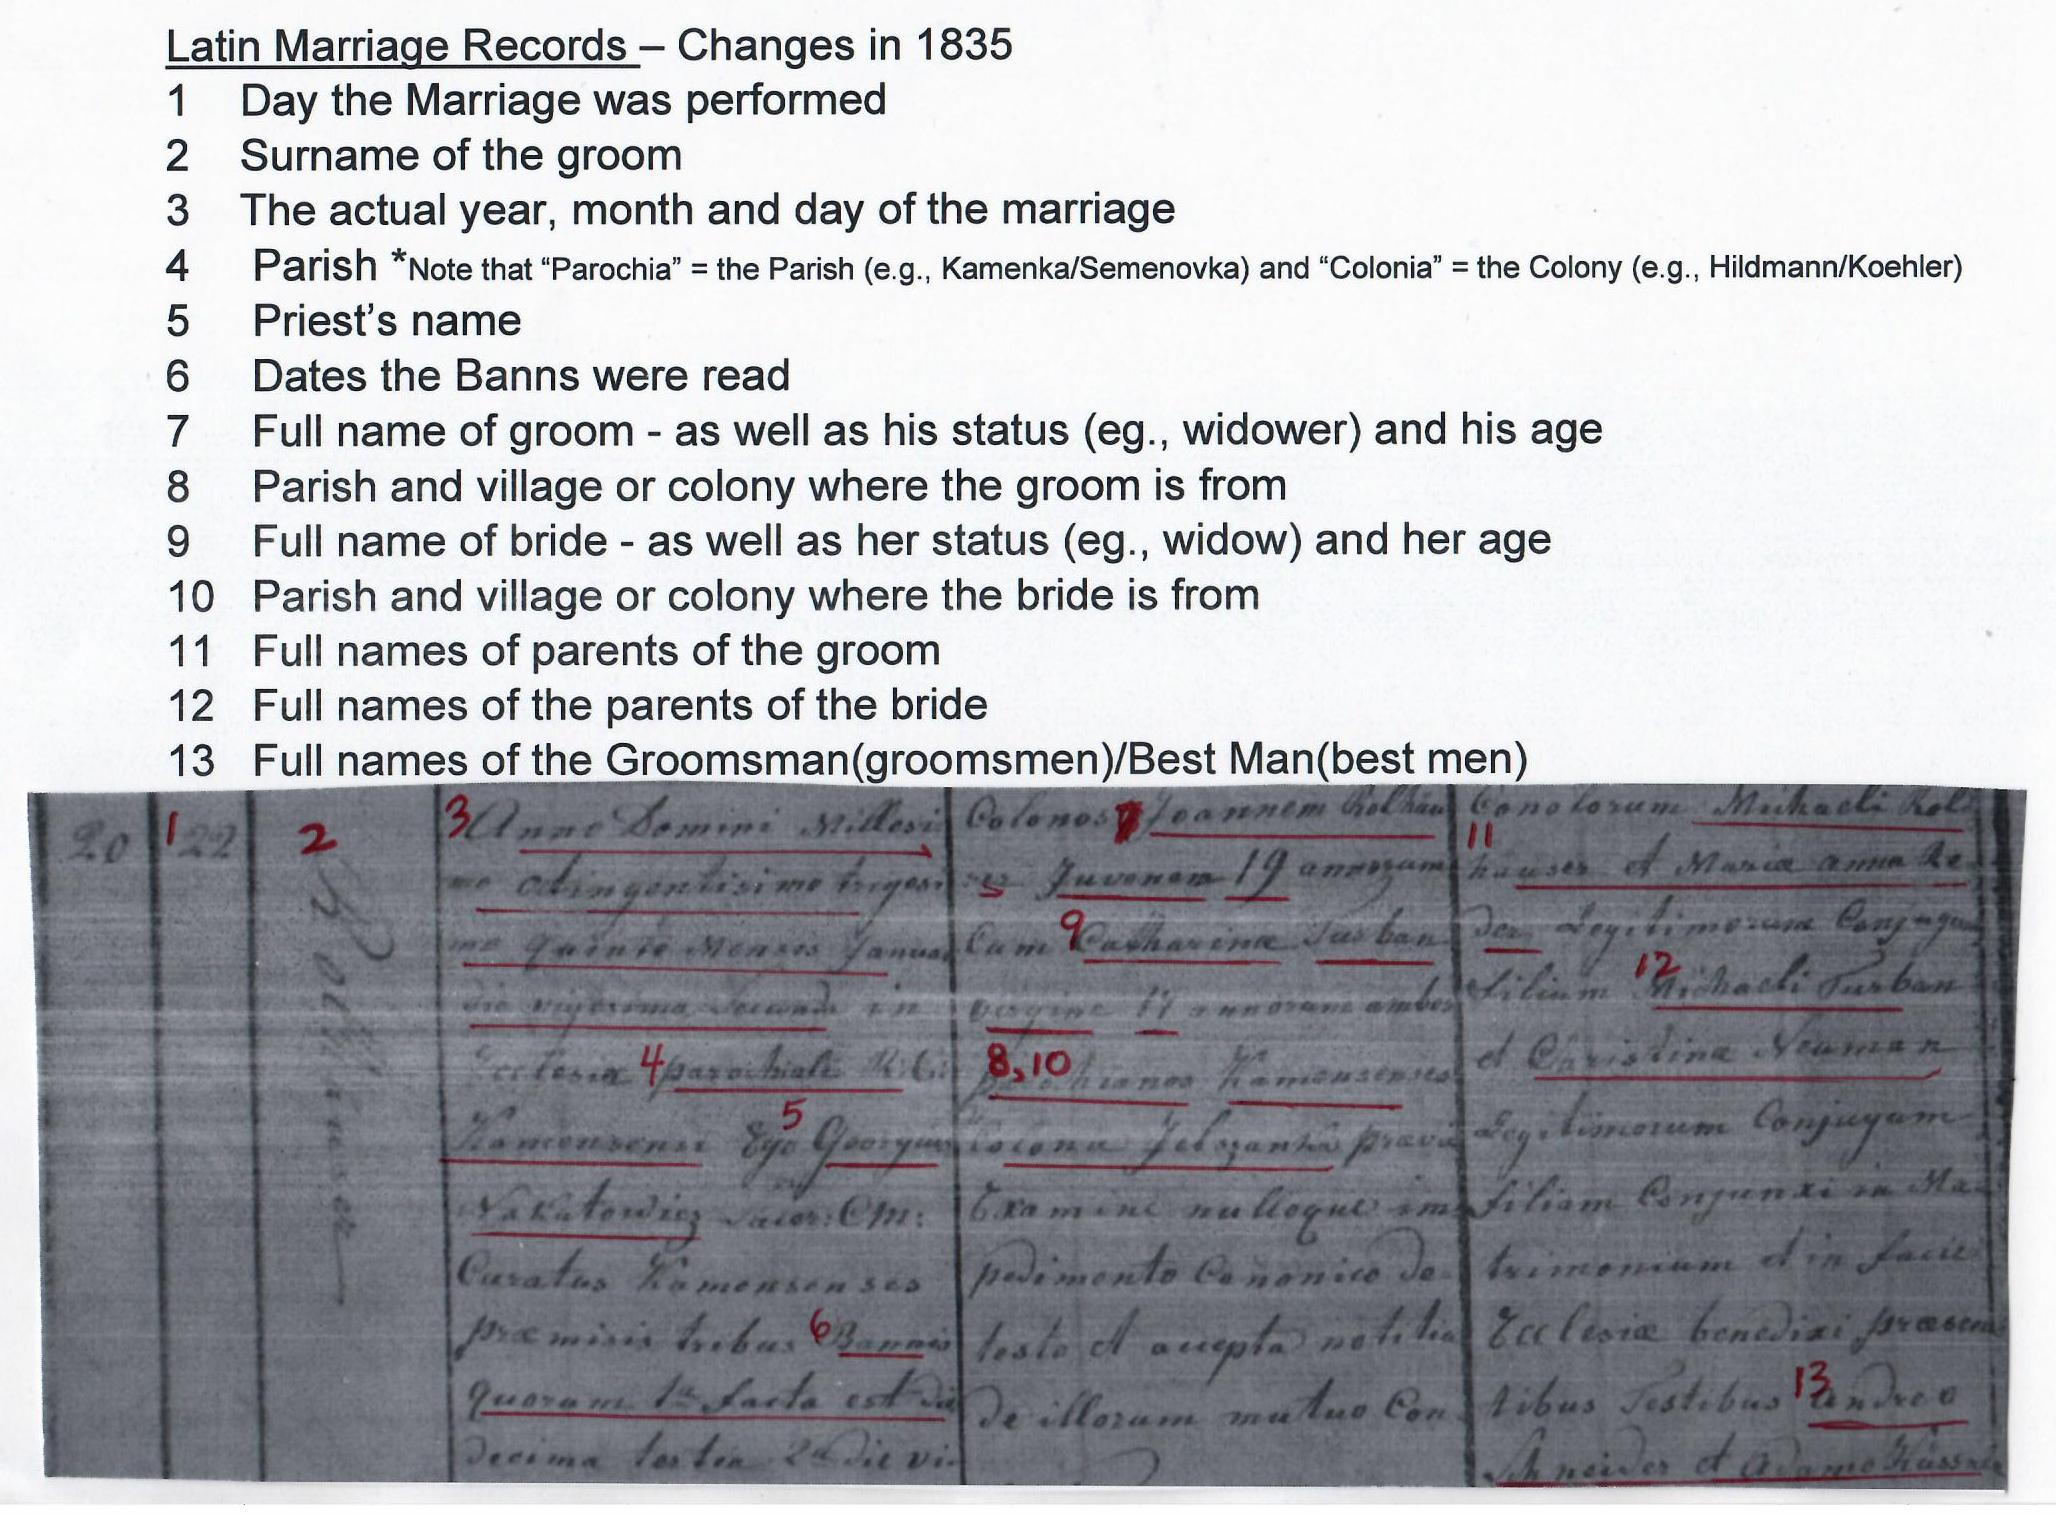 Latin Marriage Records – Changes in 1835
1 Day the Marriage was performed
2 Surname of the groom
3 The actual year, month and day of the marriage
4 Parish *Note that “Parochia” = the Parish (e.g., Kamenka/Semenovka) and “Colonia” = the Colony (e.g., Hildmann/Koehler)
5 Priest’s name
6 Dates the Banns were read
7 Full name of groom - as well as his status (eg., widower) and his age
8 Parish and village or colony where the groom is from
9 Full name of bride - as well as her status (eg., widow) and her age
10 Parish and village or colony where the bride is from
11 Full names of parents of the groom
12 Full names of the parents of the bride
13 Full names of the Groomsman(groomsmen)/Best Man(best men)
20
1 22
2
3 Anno Domini Millesi
mo octingentisimo trigesi
mo quinto Mensis Janua
die vigesima secunda in
Ecclesia 4 parochiali R: C:
5
Kamensensi Ego Georgius
Curatus Kamensenses
præmisis tribus 6 Bannis
quorum 1ma facta est die
decima tertia 2da die vi-
Colonos 7 Joannem Rolhau
ser Juvenem 19 annorum
Cum 9 Catharina Turban
virgine 17 annorum ambos
8,10 parochianos Kamensenses
Examine nulloque im
pedimento Canonico de
tecto et accepta notitia
de illorum mutuo Con
Michaeli Rol
11
hauser et Maria anna Re
der Legitimorum Conjugum
12
filium Michaeli Turban
et Christina Neuman
Legitimorum Conjugum
filiam Conjunxi in Ma
trimonium et in facie
Ecclesiæ benedixi præsen
tibus Testibus 13 Andrea
Schneider et Adamo